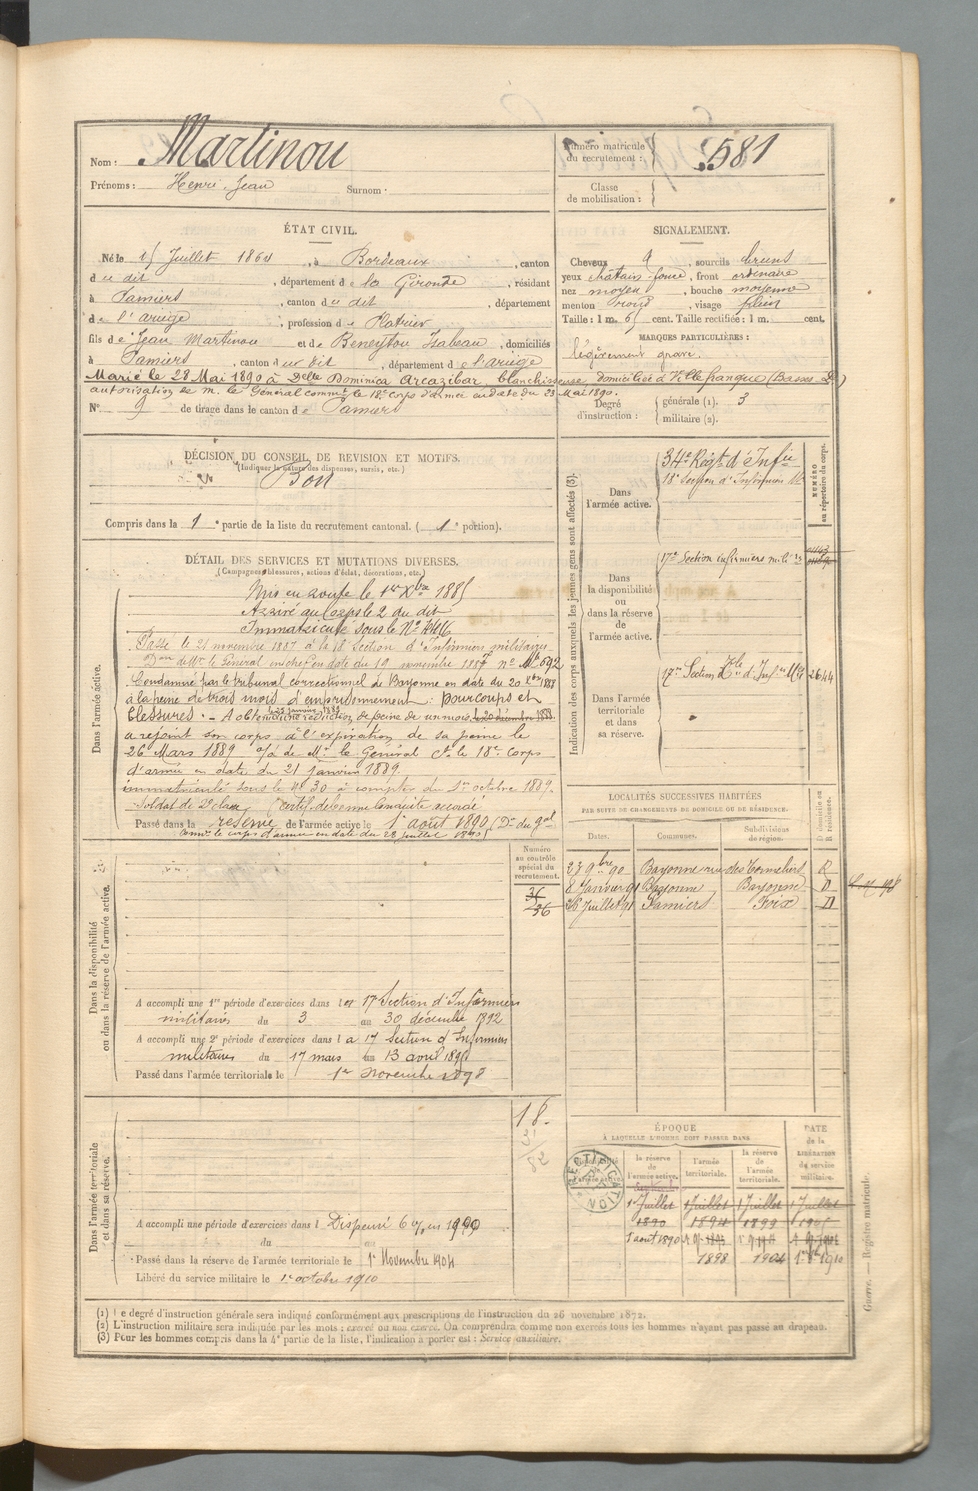 Nom : Martinou
Prénoms : Henri Jean Surnom :
Numéro matricule du recrutement : 581
Classe de mobilisation :
ÉTAT CIVIL.
Né le 15 Juillet 1864, à Bordeaux, canton
du dit, département de la Gironde, résidant
à Pamiers, canton du dit, département
de l'ariège, profession de Platrier
fils de Jean Martinou et de Beneytou Isabeau, domiciliés
à Pamiers, canton du dit, département de l'ariège
Marié le 28 Mai 1890 à Delle Dominica Arcazibar, blanchisseuse domiciliée à Villefranque (Basses P.)
autorisation de M. le Général commt le 18e corps d'armée en date du 23 Mai 1890.
N° 9 de tirage dans le canton de Pamiers
SIGNALEMENT.
Cheveux, sourcils bruns
yeux chatain foncé, front ordinaire
nez moyen, bouche moyenne
menton rond, visage plein
Taille : 1 m. 65 cent. Taille rectifiée : 1 m. cent.
MARQUES PARTICULIÈRES :
légèrement gravé.
Degré d'instruction : générale (1). 3
militaire (2).
DÉCISION DU CONSEIL DE REVISION ET MOTIFS.
(Indiquer la nature des dispenses, sursis, etc.)
Bon
Compris dans la 1e partie de la liste du recrutement cantonal. (1e portion).
DÉTAIL DES SERVICES ET MUTATIONS DIVERSES.
(Campagnes, blessures, actions d'éclat, décorations, etc.)
Dans l'armée active.
Mis en route le 1er Xbre 1885
Arrivé au Corps le 2 du dit
Immatriculé sous le N°
Passé le 21 novembre 1887 à la 18 Section d'Infirmiers militaires
Don de Mr le Général en chef en date du 19 novembre 1887 n°
Condamné par le tribunal correctionnel de Bayonne en date du 20 Xbre 1888
à la peine de trois mois d'emprisonnement : pour coups et
blessures. - A obtenu une réduction de peine de un mois, le 20 décembre 1888
le 25 janvier 1889
a rejoint son corps à l'expiration de sa peine le
26 Mars 1889 de Mr le Général Ct le 18e Corps
d'armée en date du 21 janvier 1889.
immatriculé sous le N° 30 à compter du 1er octobre 1889.
Soldat de 2e classe certif. de bonne Conduite accordé
Passé dans la réserve de l'armée active le 1er août 1890 (Don du gal
Commt le corps d'armée en date du 28 juillet 1890)
Indication des corps auxquels les jeunes gens sont affectés (3).
Dans l'armée active.
34e Régt d'Infie
18e Section d'Infirmiers
NUMÉRO au répertoire du corps.
Dans la disponibilité ou dans la réserve de l'armée active.
17e Section infirmiers milires
Dans l'armée territoriale et dans sa réserve.
17e Section 2644
LOCALITÉS SUCCESSIVES HABITÉES
PAR SUITE DE CHANGEMENTS DE DOMICILE OU DE RÉSIDENCE.
Dates. Communes. Subdivisions de région. D domicile ou R résidence.
27 9bre 90 Bayonne rue des Tonneliers R
8 Janvier 91 Bayonne Bayonne D
Juillet 91 Pamiers Foix D
Dans la disponibilité ou dans la réserve de l'armée active.
Numéro au contrôle spécial du recrutement.
36
36
A accompli une 1re période d'exercices dans la 17 Section d'Infirmiers
militaires du 3 au 30 décembre 1892
A accompli une 2e période d'exercices dans la 17 Section d'Infirmiers
militaires du 17 mars au 13 avril
Passé dans l'armée territoriale le 1er novembre 1898
Dans l'armée territoriale et dans sa réserve.
18.
A accompli une période d'exercices dans l Dispensé
du au
Passé dans la réserve de l'armée territoriale le 1er Novembre 1904
Libéré du service militaire le 1er octobre 1910
ÉPOQUE
À LAQUELLE L'HOMME DOIT PASSER DANS
la réserve de l'armée active. l'armée territoriale. la réserve de l'armée territoriale.
DATE de la LIBÉRATION du service militaire.
RECTIFICATION
1er Juillet 1890 1 Juillet 1894 1 Juillet 1899 1 Juillet 1905
1 août 1890
1898 1904 1910
(1) Le degré d'instruction générale sera indiqué conformément aux prescriptions de l'instruction du 26 novembre 1872.
(2) L'instruction militaire sera indiquée par les mots : exercé ou non exercé. On comprendra comme non exercés tous les hommes n'ayant pas passé au drapeau.
(3) Pour les hommes compris dans la 4e partie de la liste, l'indication à porter est : Service auxiliaire.
Guerre. — Registre matricule.